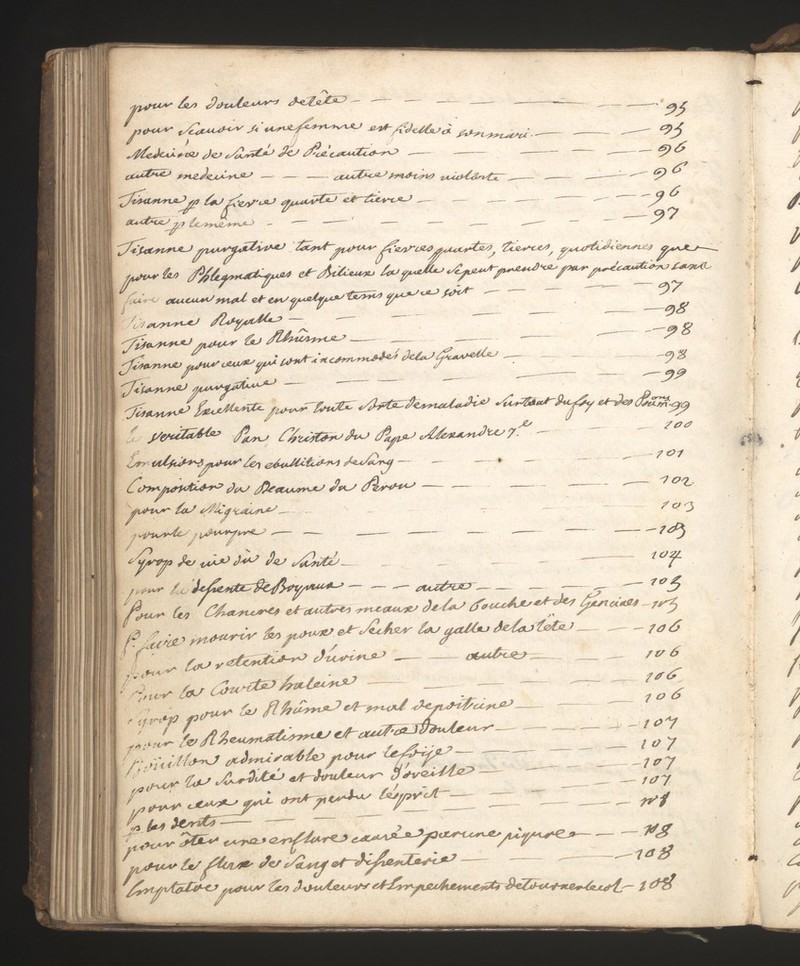 pour les douleurs detête — 95
pour Scauoir si unefemme est fidelle à sonmari — 95
Medecine de Santé de Précaution — 96
autre medecine — autre moins violente — 96
Tisanne pr la fievre quarte et tierce — 96
autre pr lemême — 97
Tisanne purgative tant pour fievres quartes, tierces, quotidiennes que
pour les Phlegmatiques et Bilieux la quelle Sepeut prendre par précaution sans
faire aucun mal et en quelque tems que ce soit — 97
Tisanne Royalle — 98
Tisanne pour le Rhûme — 98
Tisanne pour ceux qui sont incommodés dela Gravelle — 98
Tisanne purgative — 99
Tisanne Excellente pour toute sorte demaladie surtout du foy et des Poumons 99
le veritable Pan Christon du Pape Alexandre 7.e — 100
Emulsions pour les ebullitions de Sang — 101
Composition du Beaume du Perou — 102
pour la Migraine — 103
pourle pourpre — 103
Syrop de vie dit de Santé — 104
pour la desente de Boyaux — autre — 105
Pour les Chancres et autres meaux dela bouche et des Gencives — 105
Pr faire mourir les poux et Secher la galle delatête — 106
pour la retention d'urine — autre — 106
Pour la Courte haleine — 106
Syrop pour le Rhûme et mal depoitrine — 106
pour le Rheumatisme et autre Douleur — 107
Bouillon admirable pour le foije — 107
pour la Surdité et douleur d'oreille — 107
pour ceux qui ont perdu l'ésprit — 107
pr les dents — 108
pour ôter une enflure causée parune piqure — 108
pour le flux de Sang et disenterie — 108
Emplatre pour les douleurs et Empechements detournerlecol — 108